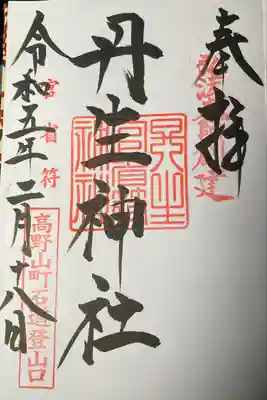 奉拝
丹生神社
官省符
令和五年二月十八日
高野山町石道登山口